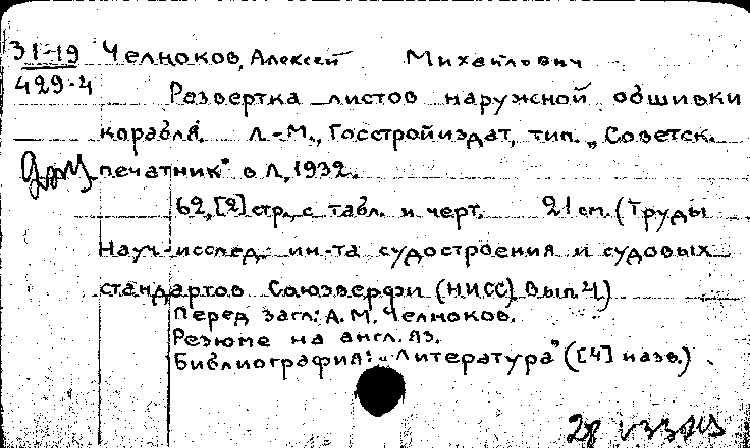 З 1-19 Челноков, Алексей Михайлович
429-4
Развертка листов наружной обшивки
корабля. Л.-М., Госстройиздат, тип. „Советск.
печатник" в Л, 1932.
62, [2] стр., с табл. и черт. 21 см. (Труды
Науч-исслед. ин-та судостроения и судовых
стандартов Союзверфи (НИСС) Вып. 4)
Перед загл: А. М. Челноков.
Резюме на англ. яз.
Библиография: „Литература" ([4] назв.)